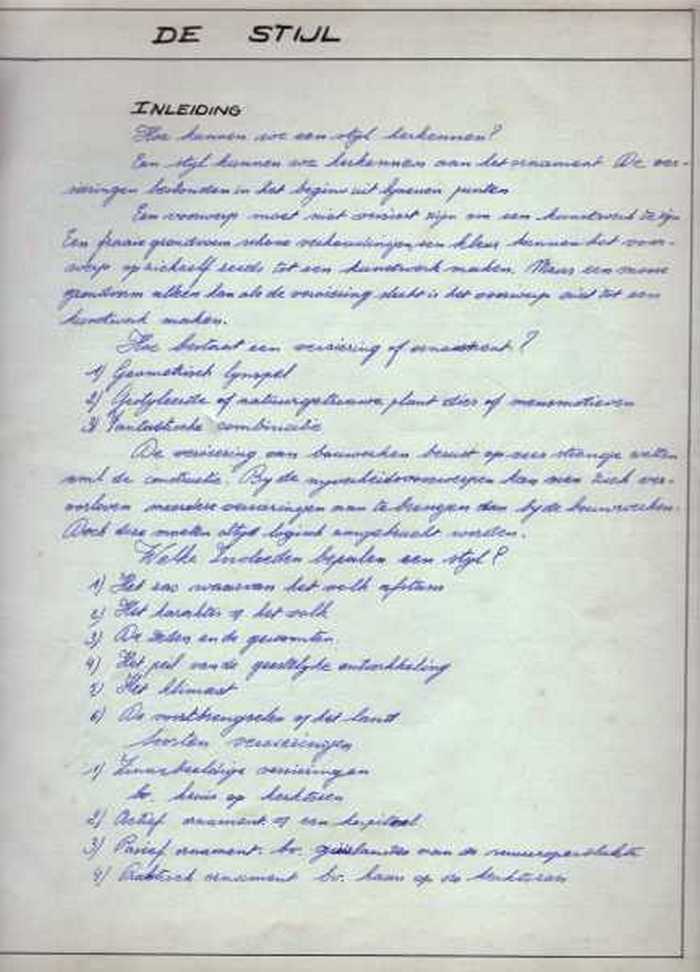 DE STIJL
INLEIDING
Hoe kunnen we een styl herkennen?
Een styl kunnen we herkennen aan het ornament De ver-
sieringen bestonden in het begin uit lynen en punten
Een voorwerp moet niet versiert zijn om een kunstwerk te zijn
Een fraaie grondvorm schone verhoudingen een kleur kunnen het voor-
werp op zichzelf reeds tot een kunstwerk maken. Maar een mooie
grondvorm alleen kan als de versiering slecht is het voorwerp niet tot een
kunstwerk maken.
Hoe bestaat een versiering of ornament?
1) Geometrisch lynspel
2) Gestyleerde of natuurgetrouwe plant dier of mensmotieven
3) Fantastische combinatie
De versiering van bouwwerken berust op zeer strenge wetten
de constructie. By de nyverheidsvoorwerpen kan men zich ver-
oorloven meerdere versieringen aan te brengen dan by de bouwwerken.
Doch deze moeten altyd logisch aangebracht worden.
Welke invloeden bepalen een styl?
1) Het ras waarvan het volk afstam
2) Het karakter v het volk
3) De zeden en de gewoonten.
4) Het peil van de geestelyke ontwikkeling
5) Het klimaat
6) De voortbrengselen v het land
Soorten versieringen
1) Zinnebeeldige versieringen
bv. kruis op kerktoren
2) Actief ornament v een kapiteel
3) Passief ornament. bv. guirlandes van de muuroppervlakte
4) Praktisch ornament bv. haan op de kerktoren